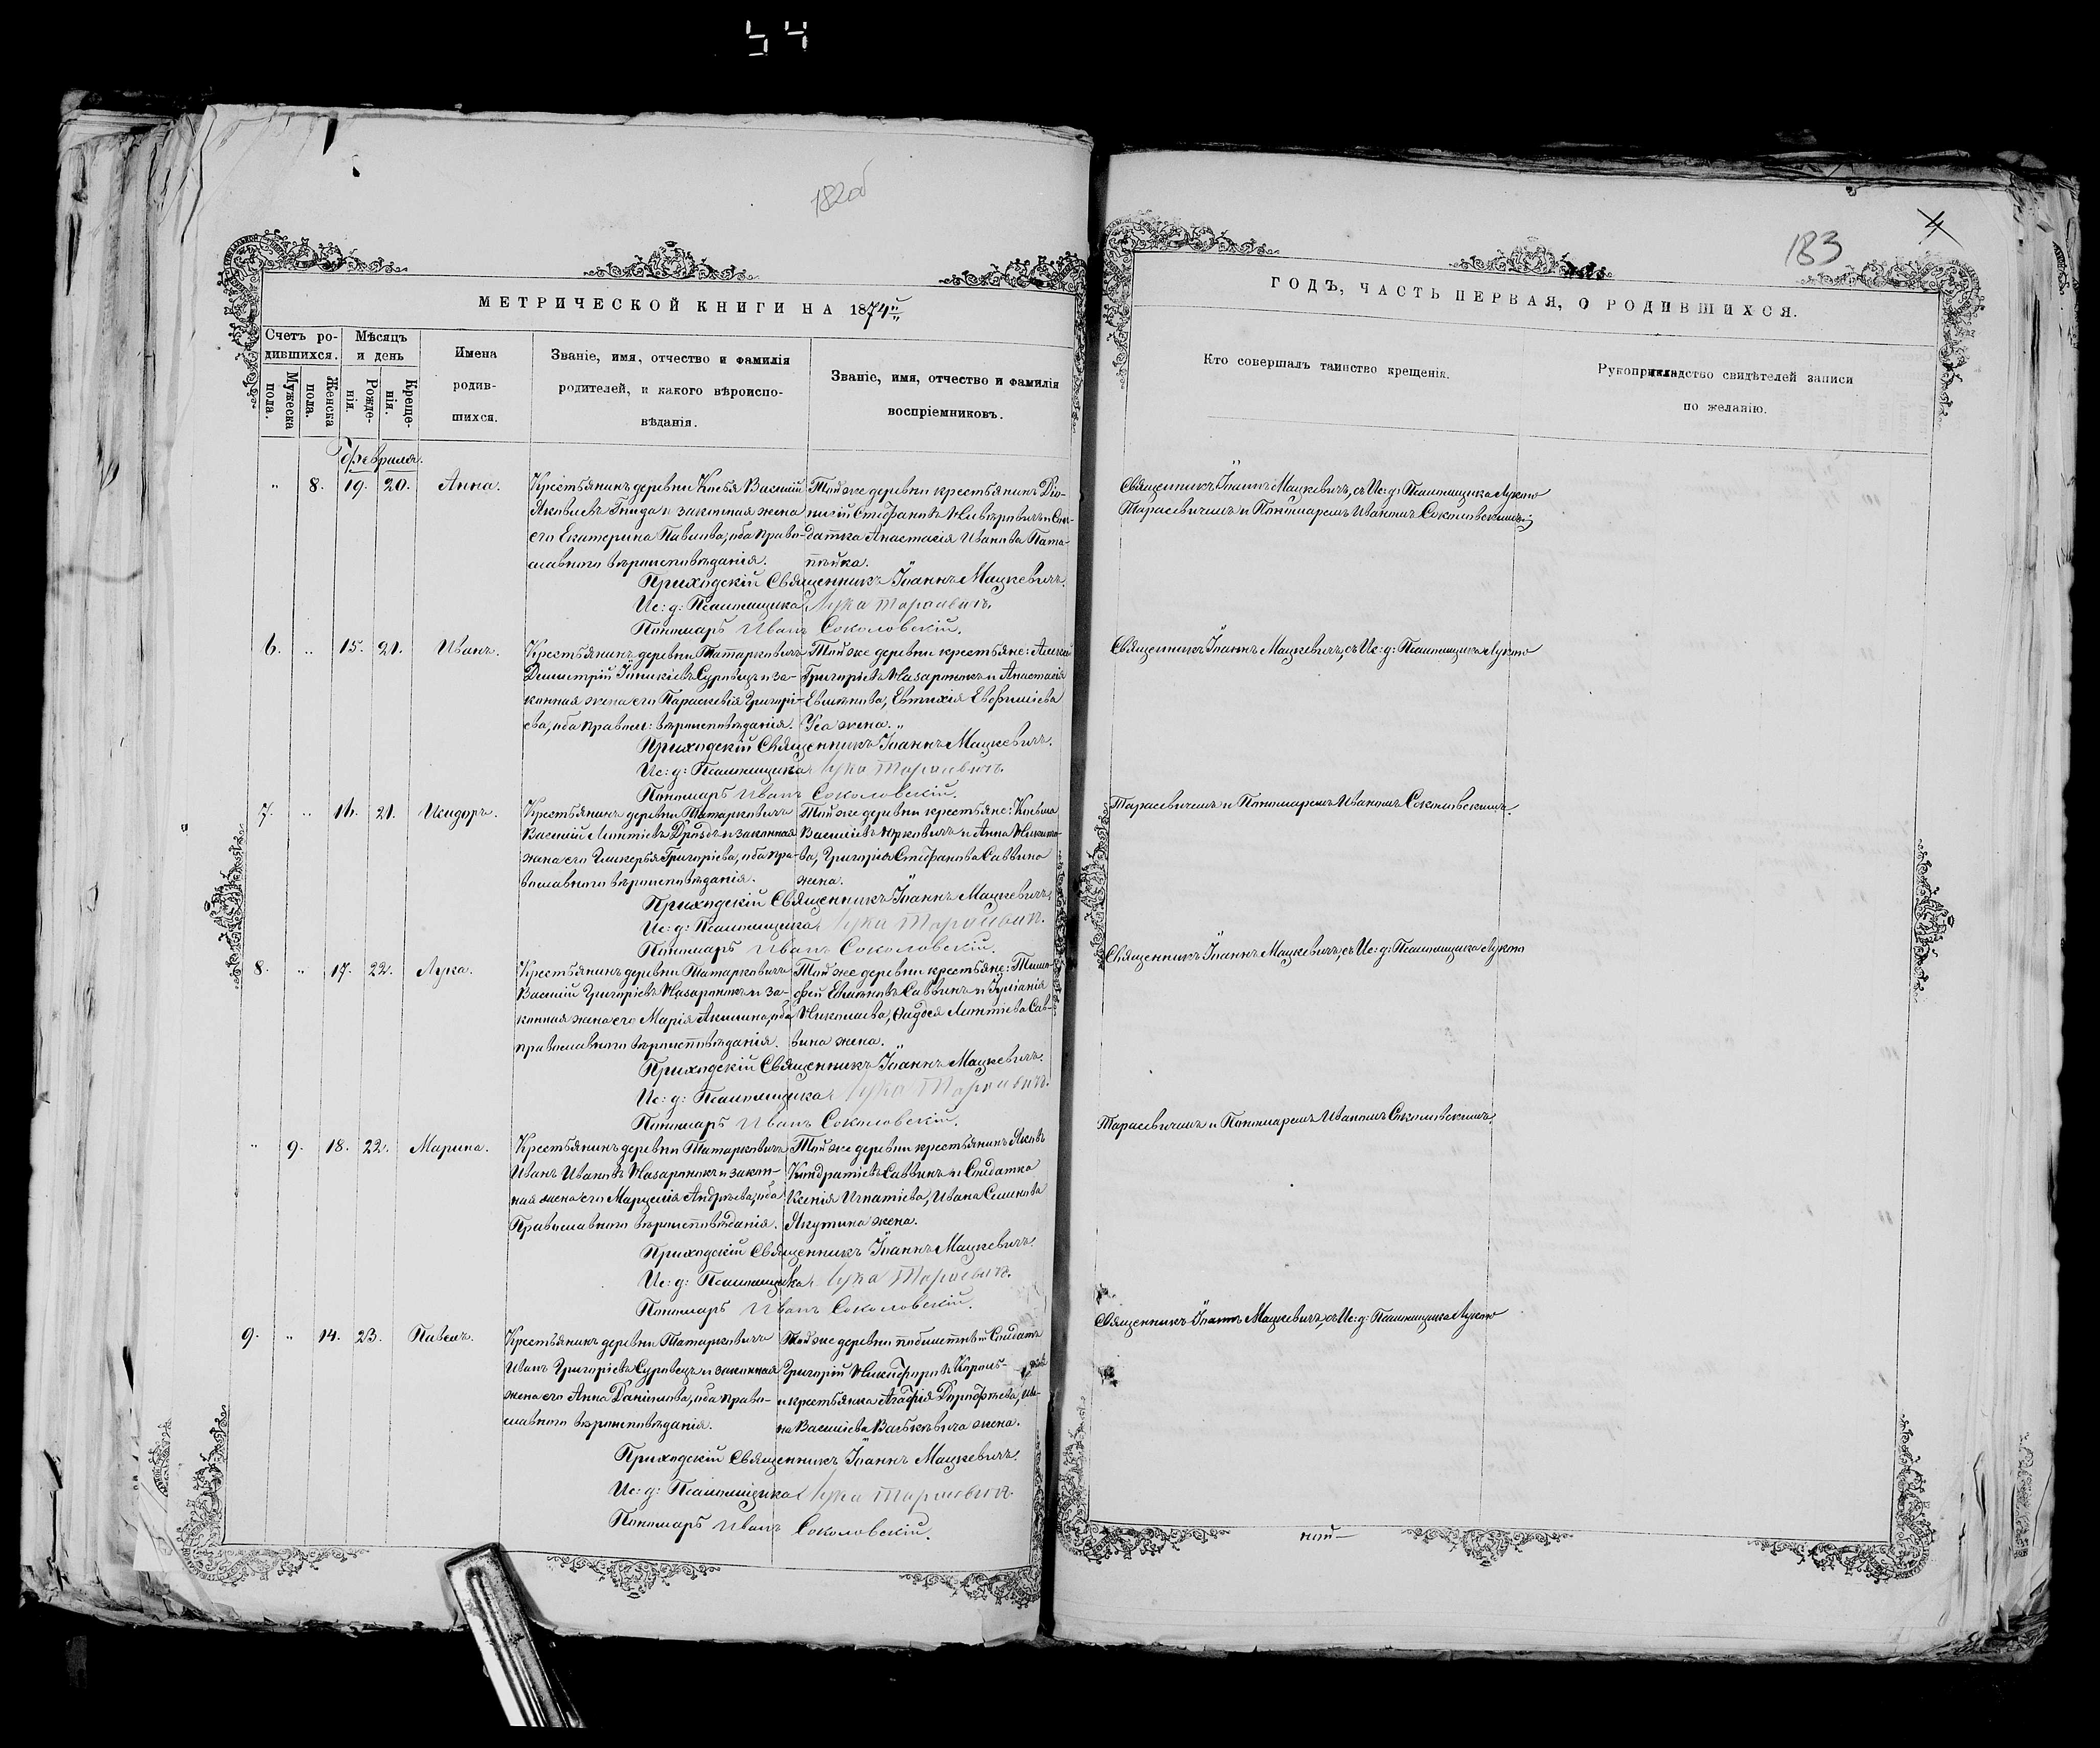 54
182об
МЕТРИЧЕСКОЙ КНИГИ НА 1874й
Счетъ родившихся.
Мужеска пола.
Женска пола.
Мѣсяцъ и день
Рожденія.
Крещенія.
Имена родившихся.
Званіе, имя, отчество и фамилія
родителей, и какого вѣроиспо-
вѣданія.
Званіе, имя, отчество и фамилія
воспріемниковъ.
Февраля.
„ 8. 19. 20. Анна.
Крестьянинъ деревни Косья Василій
Яковлевъ и законная жена
его Екатерина Павлова, оба право-
славнаго вѣроисповѣданія.
Той же деревни крестьянинъ Діо-
нисій Стефановъ и Сол-
датка Анастасія Иванова
Приходскій Священникъ Іоаннъ Мацкевичъ.
Ис: д: Псаломщика Лука Тарасевичъ.
Пономарь Иванъ Соколовскій.
6. „ 15. 21. Иванъ.
Крестьянинъ деревни Татарковичъ
Димитрій Суровецъ и за-
конная жена его Параскевія Григорі-
ева, оба правосл: вѣроисповѣданія.
Той же деревни крестьяне:
Григоріевъ Назарчукъ и Анастасія
Евтихія Евфиміева
жена.
Приходскій Священникъ Іоаннъ Мацкевичъ.
Ис: д: Псаломщика Лука Тарасевичъ.
Пономарь Иванъ Соколовскій.
7. „ 16. 21. Исидоръ.
Крестьянинъ деревни Татарковичъ
Василій Дроздъ и законная
жена его Гликерья Григоріева, оба пра-
вославнаго вѣроисповѣданія.
Той же деревни крестьяне: Косьма
Василіевъ Юрковичъ и Анна
Григорія Стефанова Саввина
жена.
Приходскій Священникъ Іоаннъ Мацкевичъ.
Ис: д: Псаломщика Лука Тарасевичъ.
Пономарь Иванъ Соколовскій.
8. „ 17. 22. Лука.
Крестьянинъ деревни Татарковичъ
Василій Григоріевъ Назарчукъ и за-
конная жена его Марія Акимова, оба
православнаго вѣроисповѣданія.
Той же деревни крестьяне: Тимо-
фей Саввинъ и Іуліанія
Николаева, Сав-
вина жена.
Приходскій Священникъ Іоаннъ Мацкевичъ.
Ис: д: Псаломщика Лука Тарасевичъ.
Пономарь Иванъ Соколовскій.
„ 9. 18. 22. Марина.
Крестьянинъ деревни Татарковичъ
Иванъ Ивановъ Назарчукъ и закон-
ная жена его Марцелія Андреева, оба
Православнаго вѣроисповѣданія.
Той же деревни крестьянинъ Яковъ
Кондратіевъ Саввинъ и Солдатка
Ксенія Игнатіева, Ивана Семенова
Якутина жена.
Приходскій Священникъ Іоаннъ Мацкевичъ.
Ис: д: Псаломщика Лука Тарасевичъ.
Пономарь Иванъ Соколовскій.
9. „ 14. 23. Павелъ.
Крестьянинъ деревни Татарковичъ
Иванъ Григоріевъ Суровецъ и законная
жена его Анна Даніилова, оба право-
славнаго вѣроисповѣданія.
Той же деревни Солдатъ
Григорій Никифоровъ
и крестьянка Агафія Дорофѣева,
Василіева жена.
Приходскій Священникъ Іоаннъ Мацкевичъ.
Ис: д: Псаломщика Лука Тарасевичъ.
Пономарь Иванъ Соколовскій.
183
4
ГОДЪ, ЧАСТЬ ПЕРВАЯ, О РОДИВШИХСЯ.
Кто совершалъ таинство крещенія.
Рукоприкладство свидѣтелей записи
по желанію.
Священникъ Іоаннъ Мацкевичъ, съ Ис: д: Псаломщика Лукою
Тарасевичемъ и Пономаремъ Иваномъ Соколовскимъ.
Священникъ Іоаннъ Мацкевичъ, съ Ис: д: Псаломщика Лукою
Тарасевичемъ и Пономаремъ Иваномъ Соколовскимъ.
Священникъ Іоаннъ Мацкевичъ, съ Ис: д: Псаломщика Лукою
Тарасевичемъ и Пономаремъ Иваномъ Соколовскимъ.
Священникъ Іоаннъ Мацкевичъ, съ Ис: д: Псаломщика Лукою